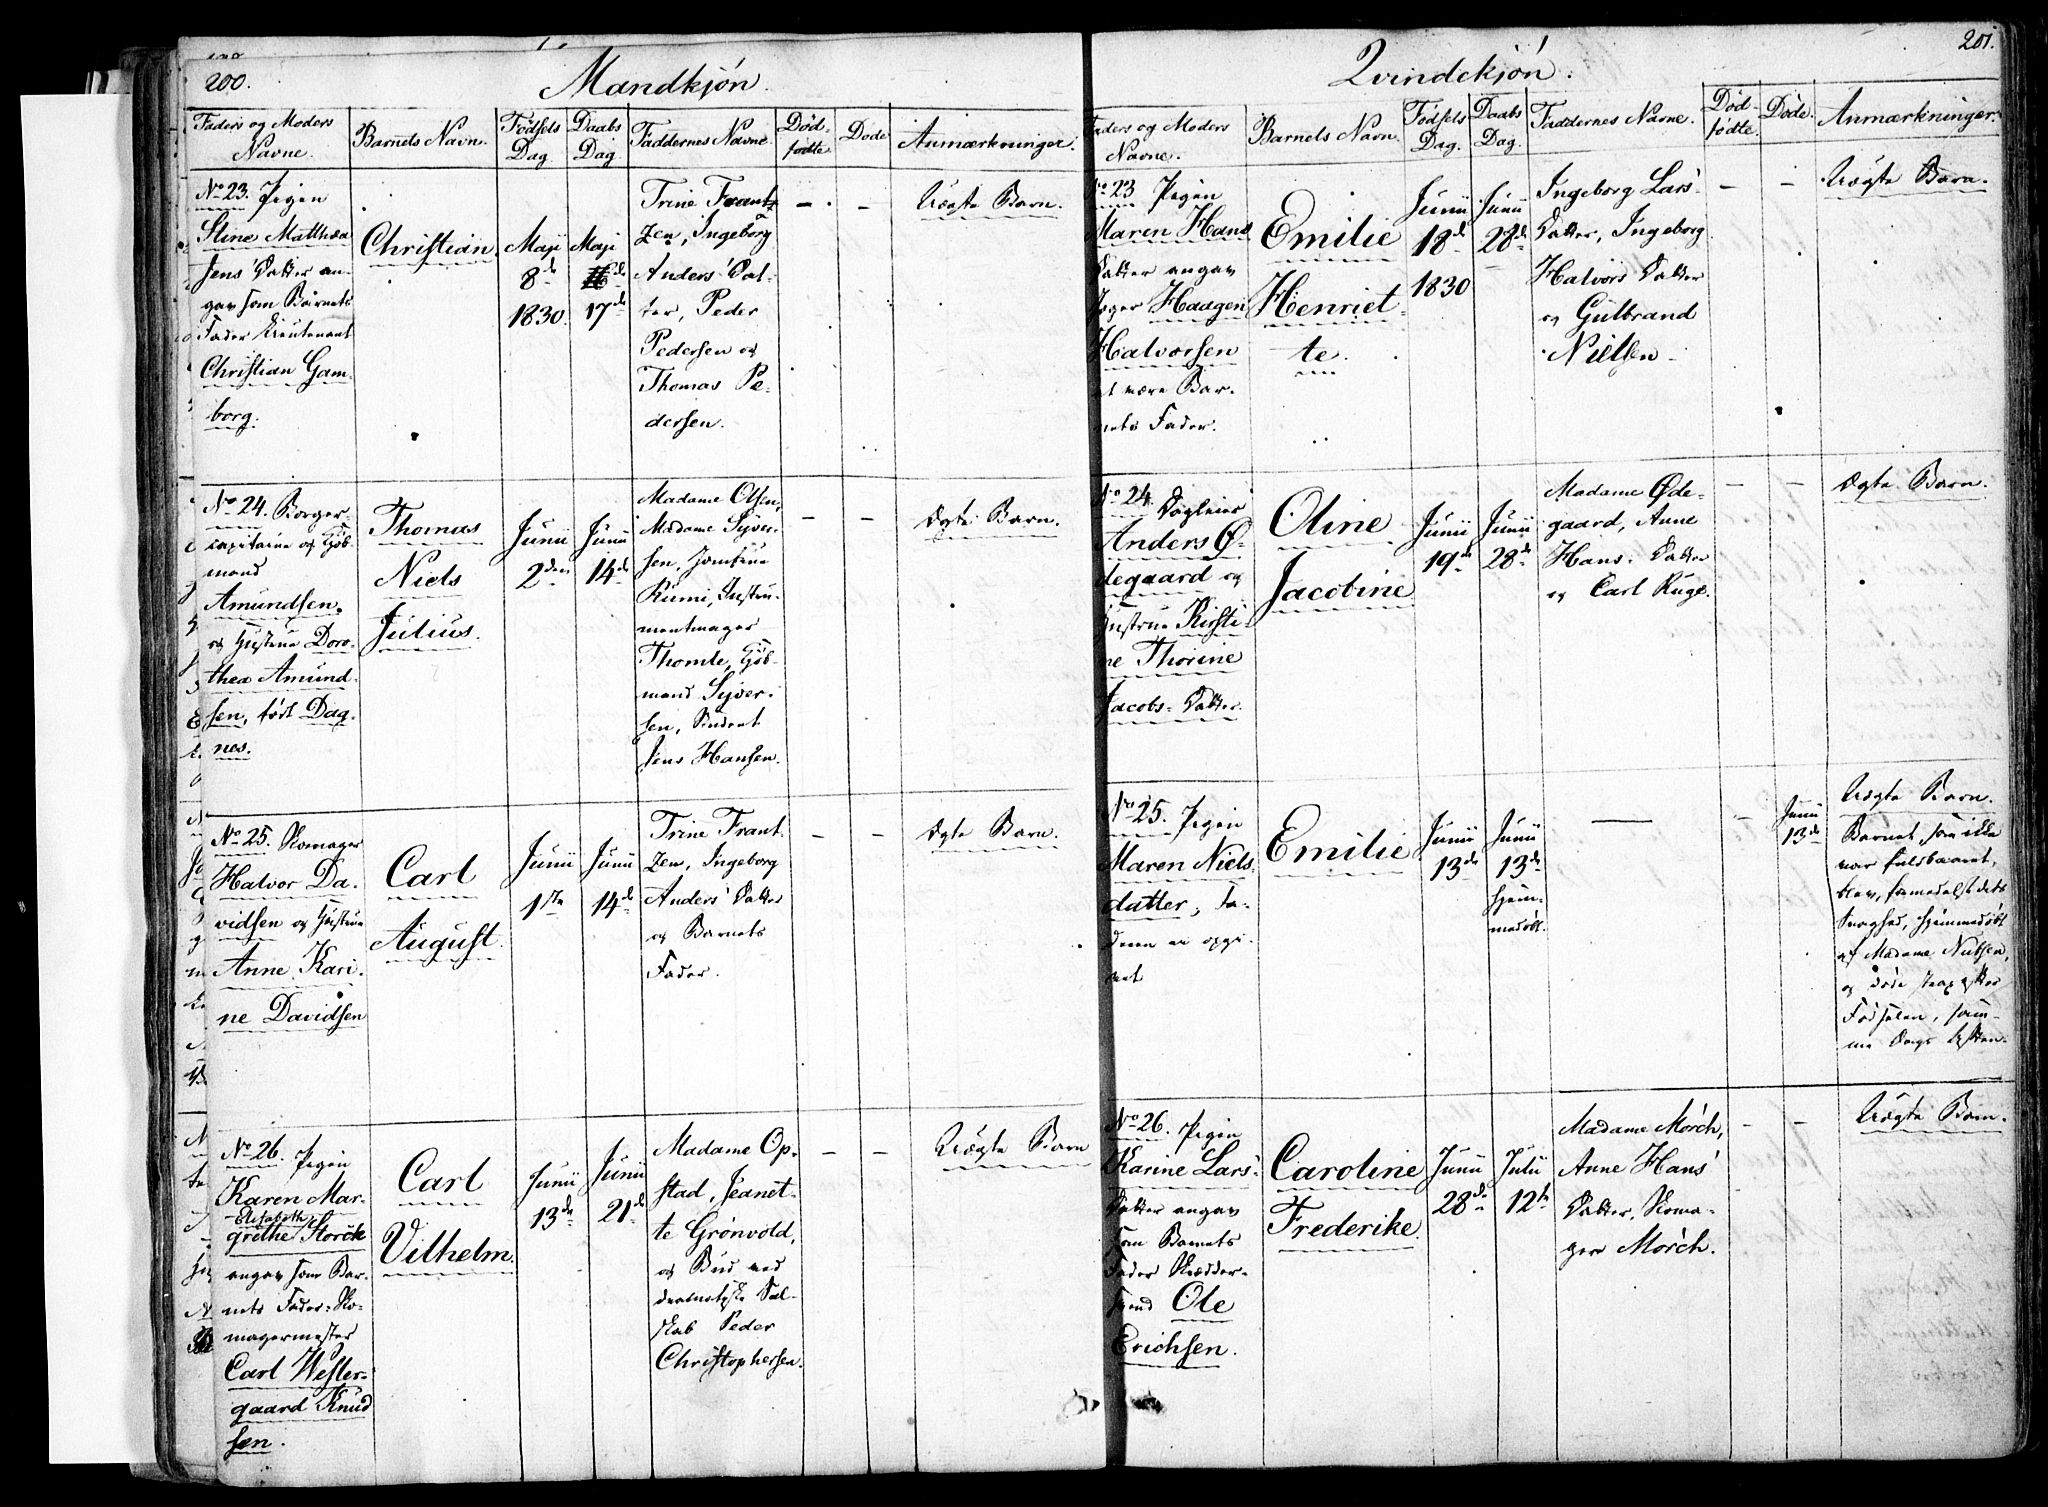 200.
Mandkjön.
Faders og Moders
Navne.
Barnets Navn.
Födsels
Dag
Daabs
Dag.
Faddernes Navne.
Död-
födte.
Döde
Anmærkninger.
No 23. Pigen
Stine Matthæa
Jens' Datter an-
gav som Barnets
Fader Lieutenant
Christian Gam-
borg.
Christian.
Maji
8de
1830.
Maji
17de
Trine Frant-
zen, Ingeborg
Anders' Dat-
ter, Peder
Pedersen og
Thomas Pe-
dersen.
—
—
Uægte Barn.
No 24. Borger-
capitaine og Kjöb-
mand
Amundsen.
og Hustrue Doro-
thea Amund-
sen, född Dag-
nes.
Thomas
Niels
Julius.
Junii
2den
Junii
14de
Madame Olsen,
Madame Syver-
sen, Jomfrue
Rumi, Instru-
mentmager
Thomle, Kjöb-
mand Syver-
sen, Student
Jens Hansen.
—
—
Ægte Barn.
No 25. Skomager
Halvor Da-
vidsen og Hustrue
Anne Kari-
ne Davidsen
Carl
August.
Junii
1ste
Junii
14de
Trine Frant-
zen, Ingeborg
Anders' Datter
og Barnets
Fader.
—
—
Ægte Barn.
No 26. Pigen
Karen Mar-
Elisabeth
grethe Storck
angav som Bar-
nets Fader: Sko-
magermester
Carl Wester-
gaard Knud
sen.
Carl
Vilhelm.
Junii
13de
Junii
21de
Madame Op-
stad, Jeanet-
te Grönvold,
og Bud ved
dramatiske Sel-
skab Peder
Christophersen.
—
—
Uægte Barn
201.
Qvindekjön.
Faders og Moders
Navne.
Barnets Navn.
Födsels
Dag.
Daabs
Dag.
Faddernes Navne.
Död-
födte.
Döde.
Anmærkninger.
No 23 Pigen
Maren Hans
Datter angav
Jæger Haagen
Halvorsen
at være Bar-
nets Fader.
Emilie
Henriet-
te.
Junii
18de
1830
Junii
28de
Ingeborg Lars'
Datter, Ingeborg
Halvors Datter
og Gulbrand
Nielsen
—
—
Uægte Barn.
No 24. Dagleier
Anders Ö-
degaard og
Hustrue Kirsti-
ne Thorine
Jacobs-Datter.
Oline
Jacobine
Junii
19de
Junii
28de
Madame Øde-
gaard, Anne
Hans-Datter
og Carl Ruge.
—
—
Ægte Barn.
No 25. Pigen
Maren Niels
datter, Fa-
deren ei opgi-
vet
Emilie
Junii
13de
Junii
13de
Hjem-
medöbt.
—
—
Junii
13de
Uægte Barn.
Barnet, som ikke
var fuldbaaret,
blev, formedelst dets
Svaghed, hjemmedöbt
af Madame Nielsen,
og döde strax efter
Födselen, sam-
me Dags Aften.
No 26. Pigen
Karine Lars'-
Datter angav
som Barnets
Fader Skrædder-
svend Ole
Erichsen.
Caroline
Frederike.
Junii
28de
Julii
12te
Madame Mörch,
Anne Hans'
Datter, Skoma-
ger Mörch.
—
—
Uægte Barn.